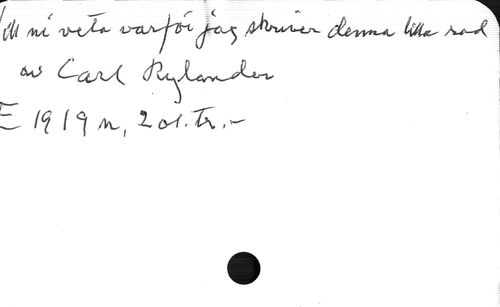 Vill ni veta varför jag skriver denna lilla rad
av Carl Rylander
E 1919 n, 2 ol. Tr. -